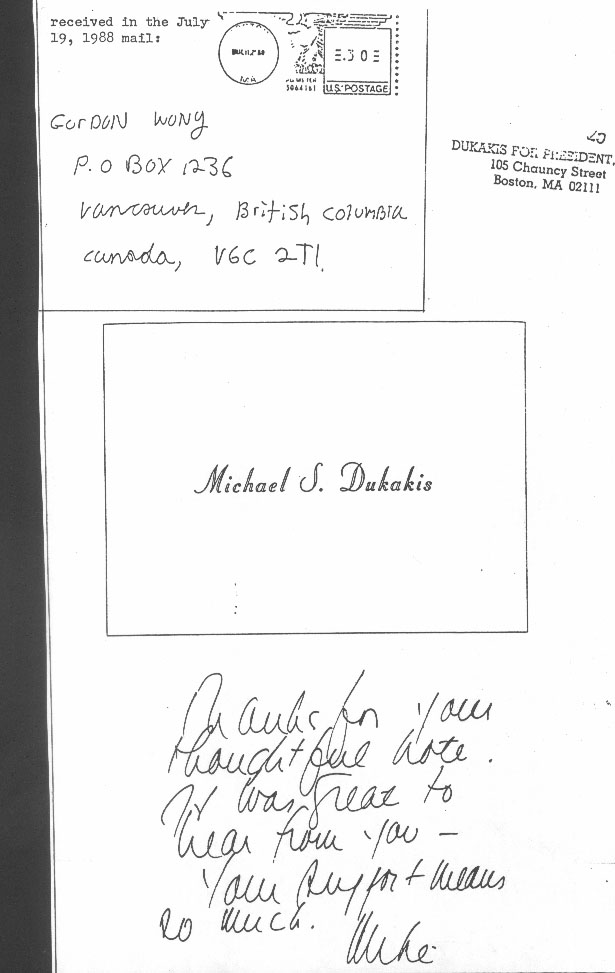 received in the July
19, 1988 mail:
MA
.30
U.S. POSTAGE
GORDON WONG
P.O BOX 1236
Vancouver, British Columbia
Canada, V6C 2T1
DUKAKIS FOR PRESIDENT,
105 Chauncy Street
Boston, MA 02111
Michael S. Dukakis
Thanks for your
thoughtful note.
It was great to
hear from you –
Your support means
so much.
Mike